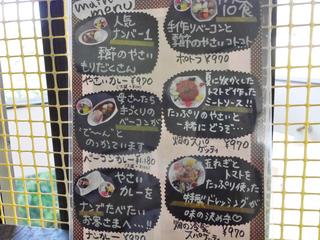 main
menu
人気
ナンバー1
季節のやさい
もりだくさん
やさいカレー ¥970
母さんたち
手づくりの
ベーコンが
で〜〜んと
のっかっています
ベーコンカレー ¥1180
やさい
カレーを
ナンでたべたい
お客さまへ…!!
ナンカレー ¥970
10食
手作りベーコンと
季節のやさいコトコト
ポトフ ¥970
夏に欠かしてた
トマトで作った
ミートソース!!
たっぷりのやさいと
一緒にどうぞ…
畑のスパゲッティ ¥970
玉ねぎと
トマトを
たっぷり使った
特製ドレッシングが
味の決め手♡
畑の冷製スパゲティ ¥970